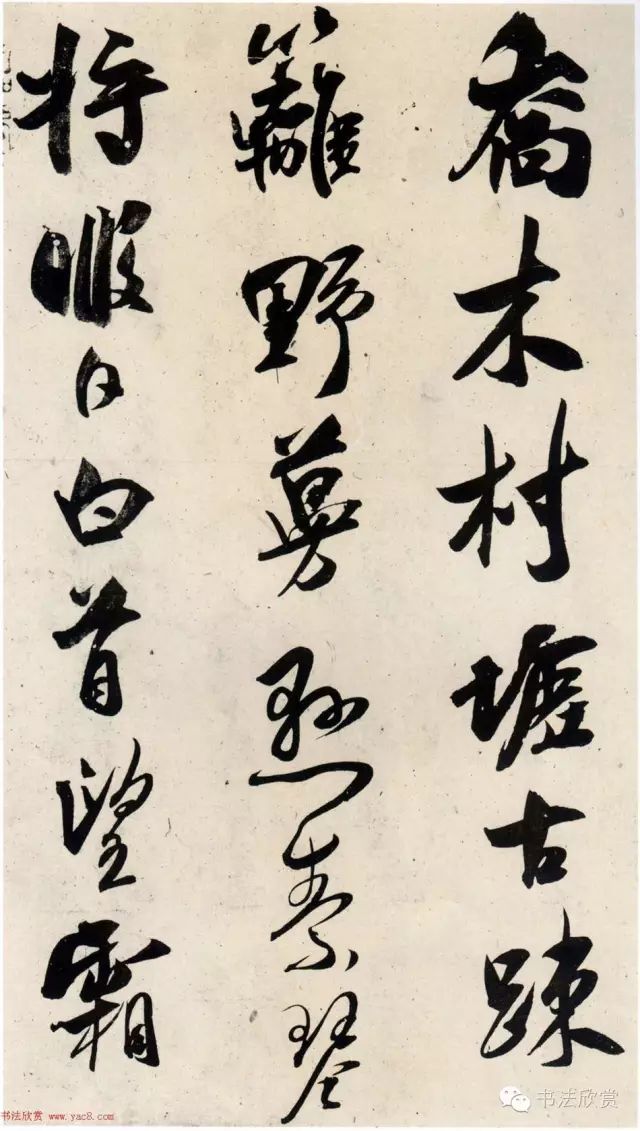 喬木村墟古踈
籬野蔓懸素琴
将暇日白首望霜
书法欣赏 www.yac8.com
书法欣赏